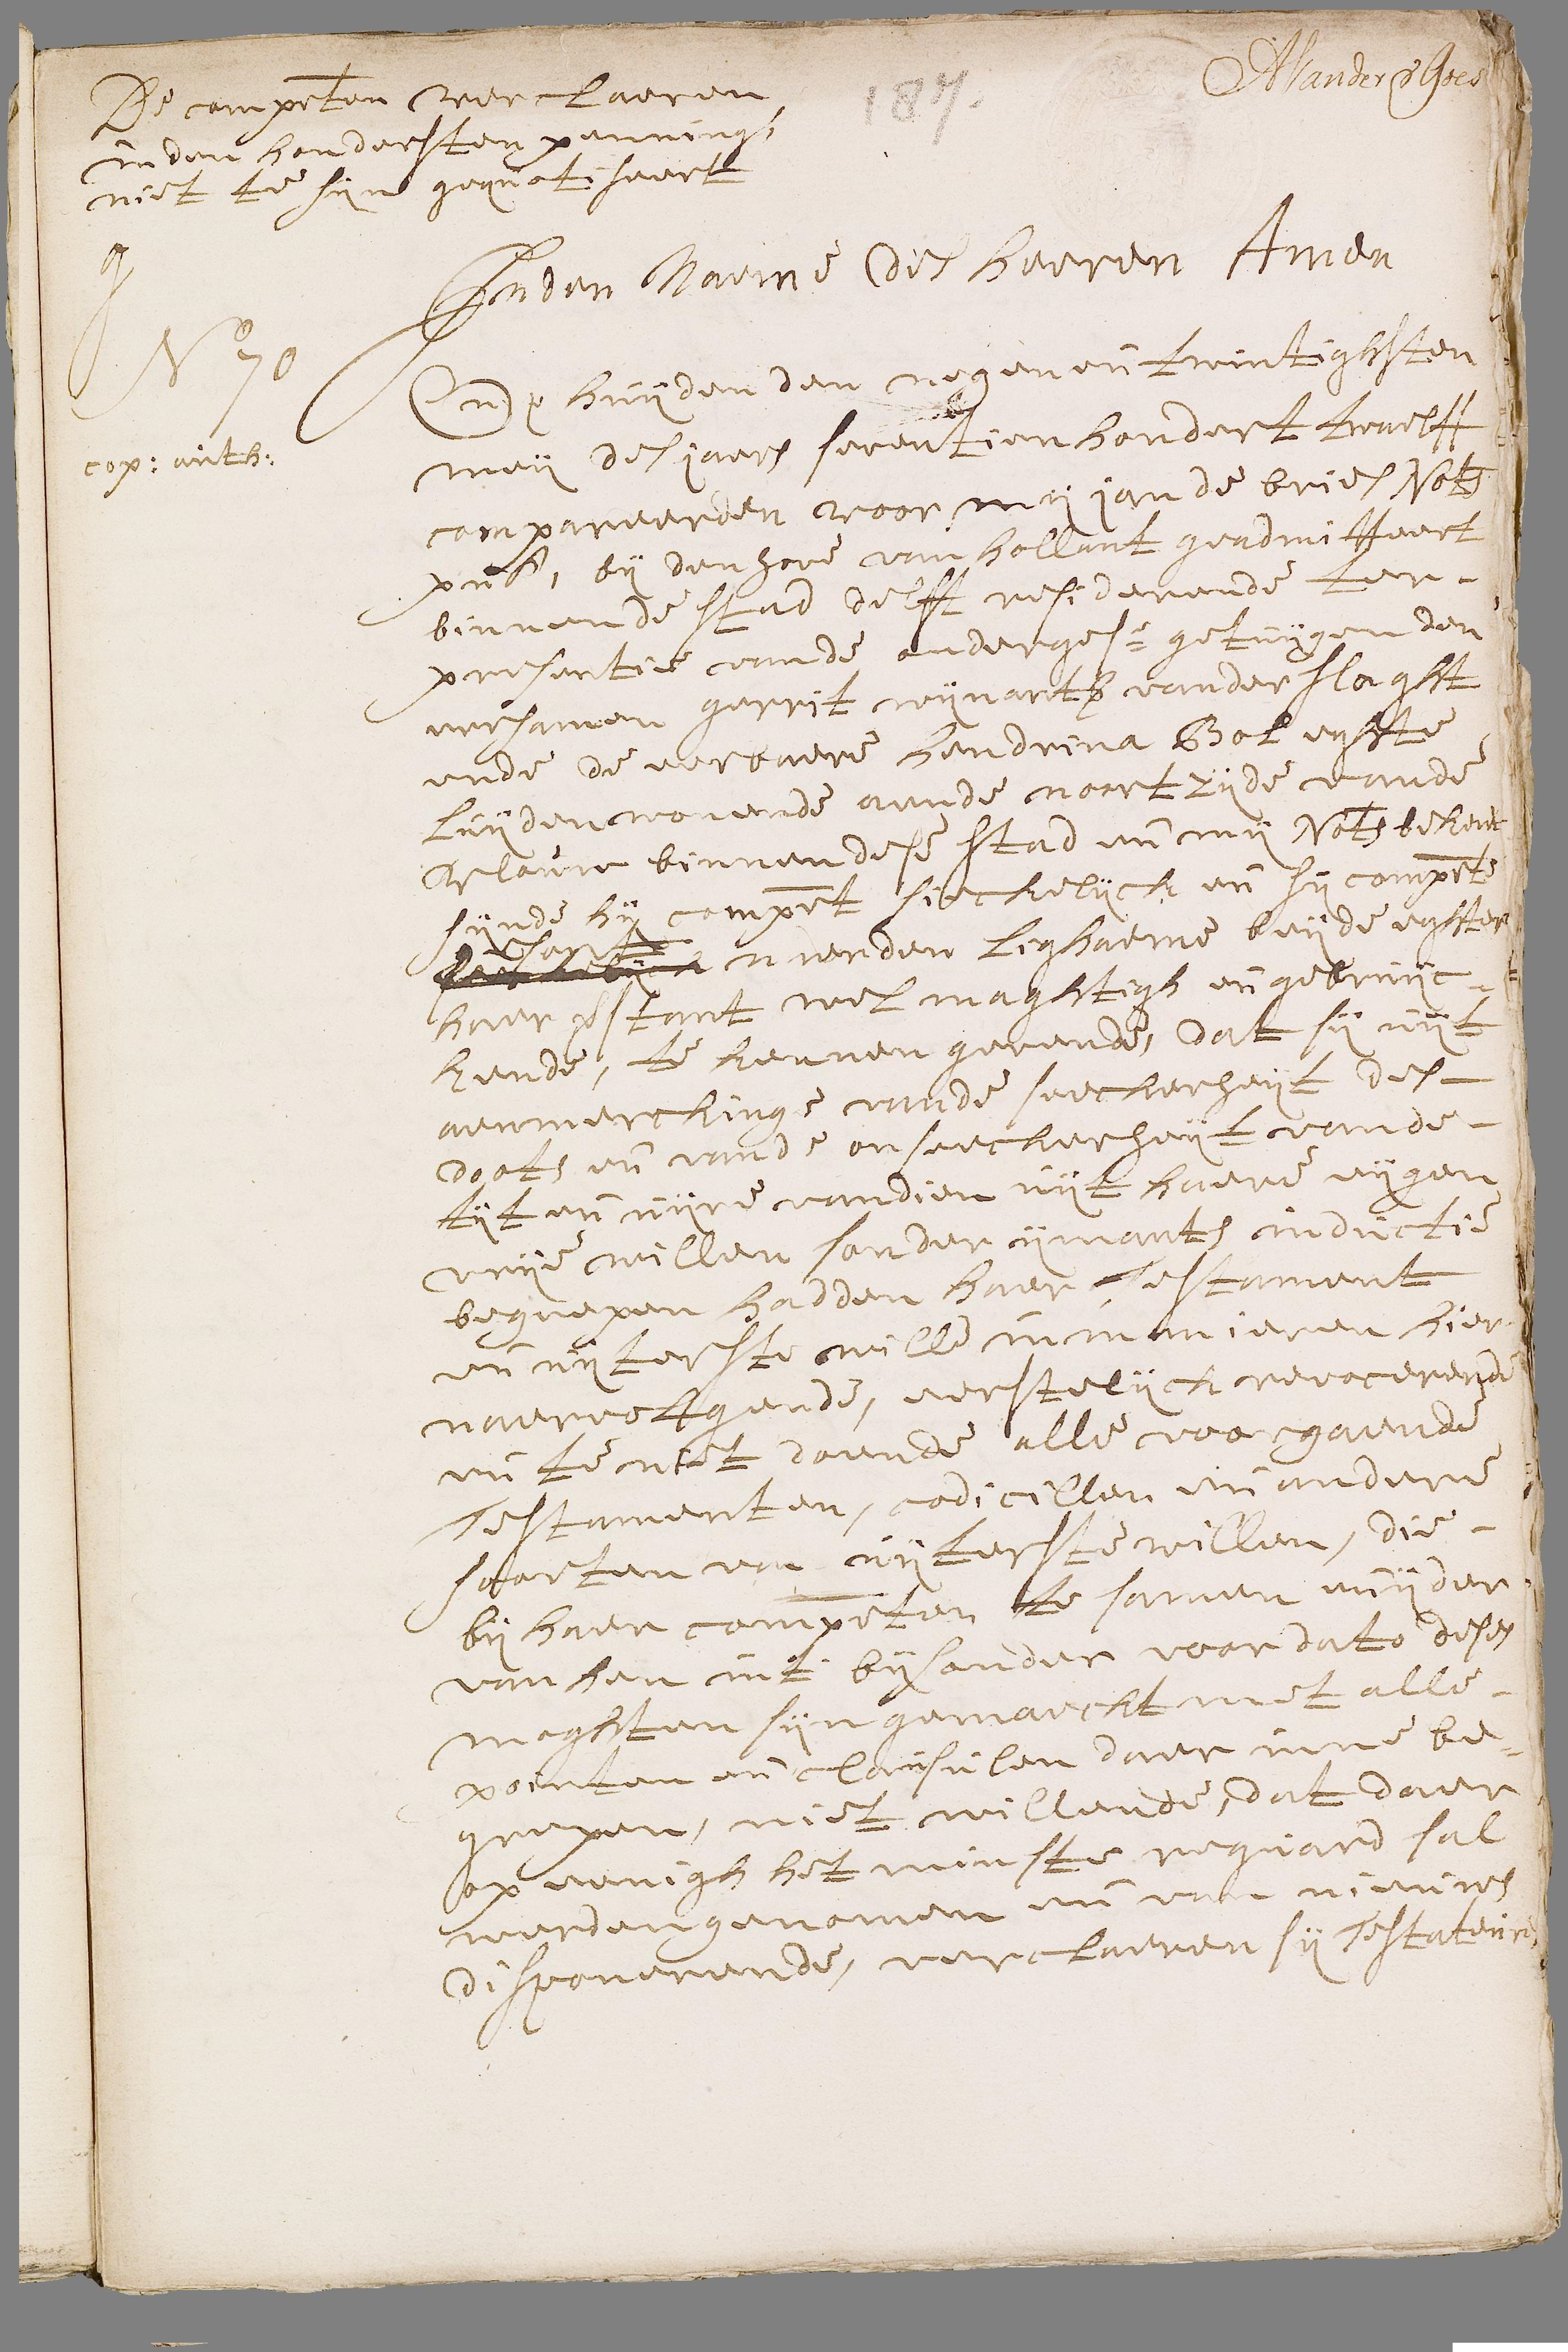 De compten verclaeren
inden hondersten penningh
niet te sijn gequotiseert
187.
AVander Goes
No 70
cop: auth:
Inden Naeme des heeren Amen
Op huijden den negenen twintighsten
meij des jaers seventien hondert twaelff
compareerden voor mij jan de bries Nots
publ, bij den hove van hollant geadmitteert
binnen de stad delft residerende ter-
presentie vande ondergesz getuijgen den
eersamen gerrit wijnants vander slaght
ende de eerbaere hendrina Bol eghte
luijden wonende aende noortzijde vande
geloeve binnen dese stad en mij Nots bekent
sijnde hij compt sieckelijck en sij compte
gesont naer den lighaeme beijde eghter
haer verstant wel maghtigh en gebruijc-
kende, te kennen gevende, dat sij uijt
aenmerckinge vande seeckerheijt des-
doots en vande onseeckerheijt vande-
tijt en uijre vandien uijt haere eijgen
vrije willen sonder ijmants inductie
begrepen hadden haer Testament
en uijterste wille in manieren hier-
naervolgende, eerstelijck revocerende
en te niet doende alle voorgaende
Testamenten, codicillen en andere
soorten van uijterste willen, die-
bij haer compten te samen en ijder
van hen int bijsonder voor dato deses
moghten sijn gemaeckt met alle-
pointen en clausulen daer inne be-
grepen, niet willende, dat daer
op eenigh het minste reguard sal
werden genomen en van nieuws
disponerende, verclaeren sij Testateurs